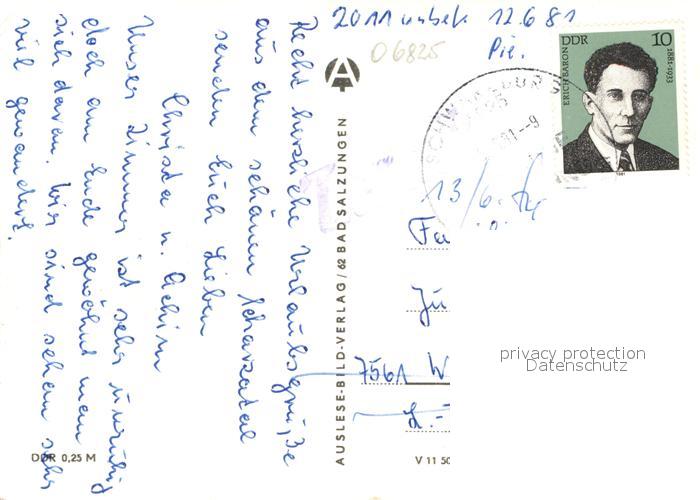 2011 unbek 12.6.81
06825
Pie.
Recht herzliche Urlaubsgrüße
aus dem schönen Schwarzatal
senden Euch Lieben
Christa u. Achim
Unser Zimmer ist sehr unruhig
doch am Ende gewöhnt man
sich daran. Wir sind schon sehr
viel gewandert.
DDR 0,25 M
AUSLESE-BILD-VERLAG / 62 BAD SALZUNGEN
V 11 50
SCHWARZBURG
81-9
DDR 10
ERICH BARON
1881-1933
1981
13/6.
Fa
Ju
7561 W
L.-
privacy protection
Datenschutz